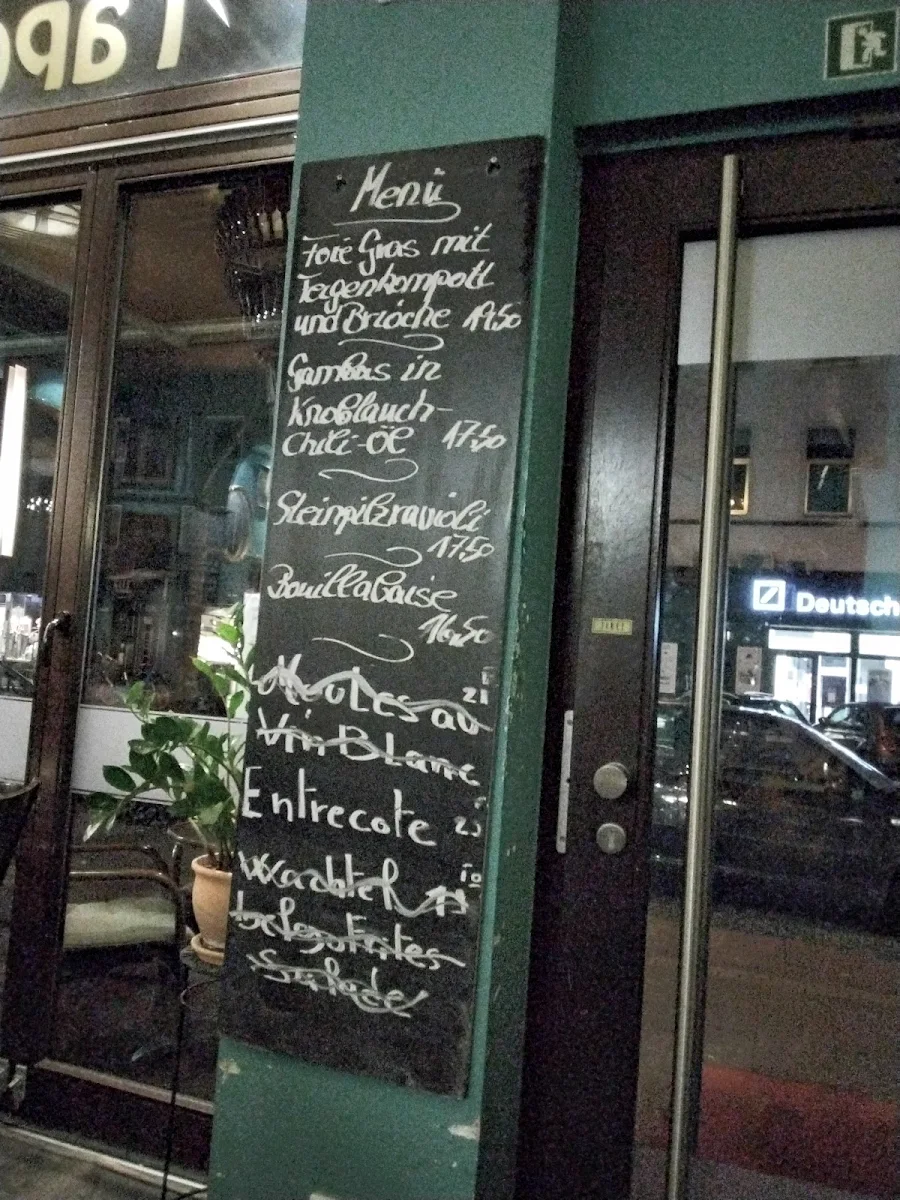 Tapa
Menü
Foie Gras mit
Feigenkompott
und Brioche 19,50
Gambas in
Knoblauch-
Chili-Öl 17,50
Steinpilzravioli
17,50
Bouillabaise
16,50
Moules au 21
Vin Blanc
Entrecote 25
Wachtel
Frites
Salade
Deutsch